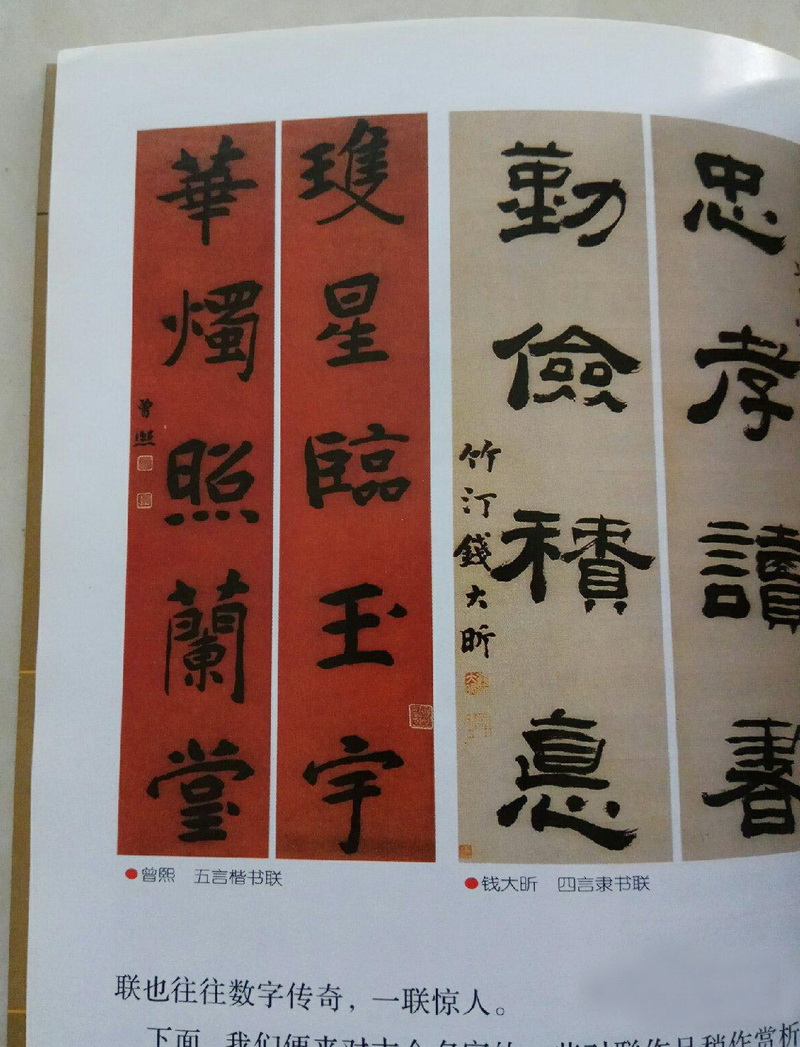 忠孝讀書
勤儉積悳
竹汀錢大昕
星臨玉宇
華燭照蘭堂
曾熙
曾熙 五言楷书联
钱大昕 四言隶书联
联也往往数字传奇，一联惊人。
下面，我们便来对古今名家的一些对联作品稍作赏析